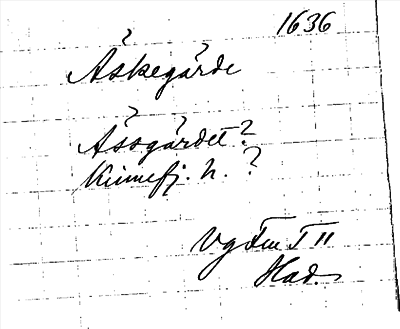 1636
Åskegärde
Åssgärdet?
Kinnefj. h. ?
Vg Fm I 11
Had.